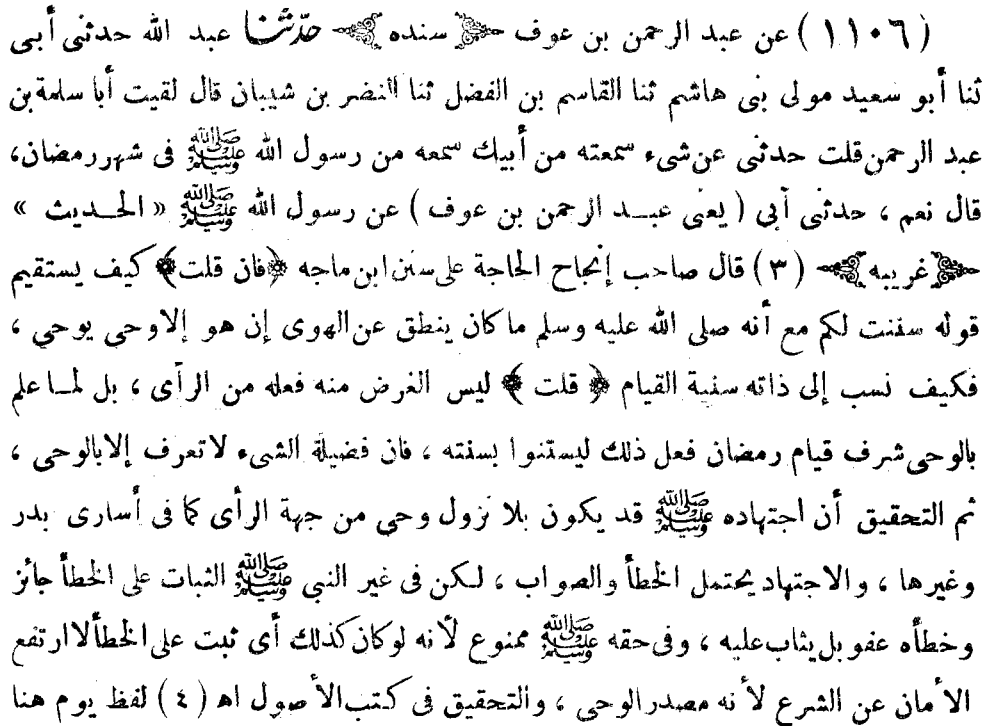 (١١٠٦) عن عبد الرحمن بن عوف سنده حدّثنا عبد الله حدثنى أبى
ثنا أبو سعيد مولى بنى هاشم ثنا القاسم بن الفضل ثنا النضر بن شيبان قال لقيت أبا سلمة بن
عبد الرحمن قلت حدثنى عن شىء سمعته من أبيك سمعه من رسول الله ﷺ فى شهر رمضان،
قال نعم ، حدثنى أبى ( يعنى عبــد الرحمن بن عوف ) عن رسول الله ﷺ « الحـديث »
غريبه (٣) قال صاحب إنجاح الحاجة على سنن ابن ماجه ﴿فان قلت﴾ كيف يستقيم
قوله سننت لكم مع أنه صلى الله عليه وسلم ما كان ينطق عن الهوى إن هو إلا وحى يوحى ،
فكيف نسب إلى ذاته سنية القيام ﴿ قلت ﴾ ليس الغرض منه فعله من الرأى ، بل لمـا علم
بالوحى شرف قيام رمضان فعل ذلك ليستنوا بسنته ، فان فضيلة الشىء لا تعرف إلا بالوحى ،
ثم التحقيق أن اجتهاده ﷺ قد يكون بلا نزول وحى من جهة الرأى كما فى أسارى بدر
وغيرها ، والاجتهاد يحتمل الخطأ والصواب ، لـكن فى غير النبى ﷺ الثبات على الخطأ جائز
وخطأه عفو بل يثاب عليه ، وفى حقه ﷺ ممنوع لأنه لو كان كذلك أى ثبت على الخطأ لارتفع
الأمان عن الشرع لأنه مصدر الوحى ، والتحقيق فى كتب الأصول اه (٤) لفظ يوم هنا